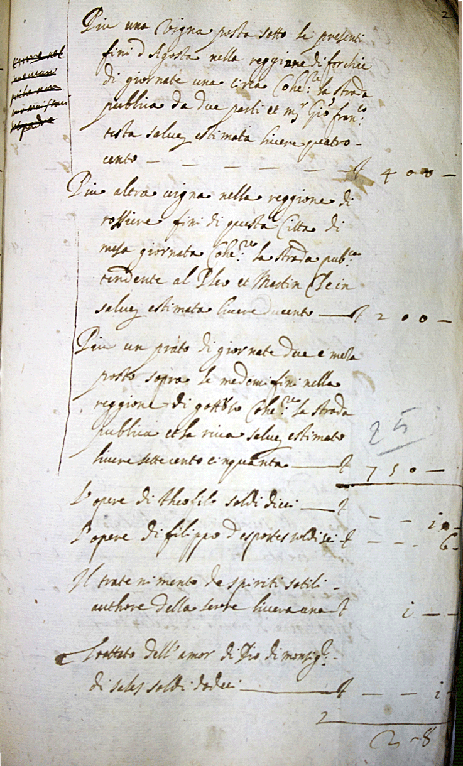 2
Piu una vigna posta sotto le presenti
fini d'Agosta nella reggione di forchie
di giornate una circa Coher.ze la strada
publica da due parti et m.r Gio fran.co
testa salvez estimata livere quatro-
cento — — — — — — — ₶ 400 —
Piu altra vigna nella reggione di
rossiere fini di questa Citta di
meza giornata Coher.ze la strada pub.ca
tendente al et Martin Clein
salvez estimata livere ducento — ₶ 200 —
Piu un prato di giornate due e meza
posto sopra le medeme fini nella
reggione di Coher.ze la strada
publica et la riva salvez estimato
livere settecento cinquanta — ₶ 750 —
25
L'opere di theofilo soldi dieci — ₶ — — 10
L'opere di filippo d'esportes soldi sei ₶ — — 6
Il tratenimento de spiriti sotili
authore della serre livera una ₶ 1 — —
Trattato dell'amor di Dio di monsig.r
di sales soldi dodeci — ₶ — — 1
2 — 8